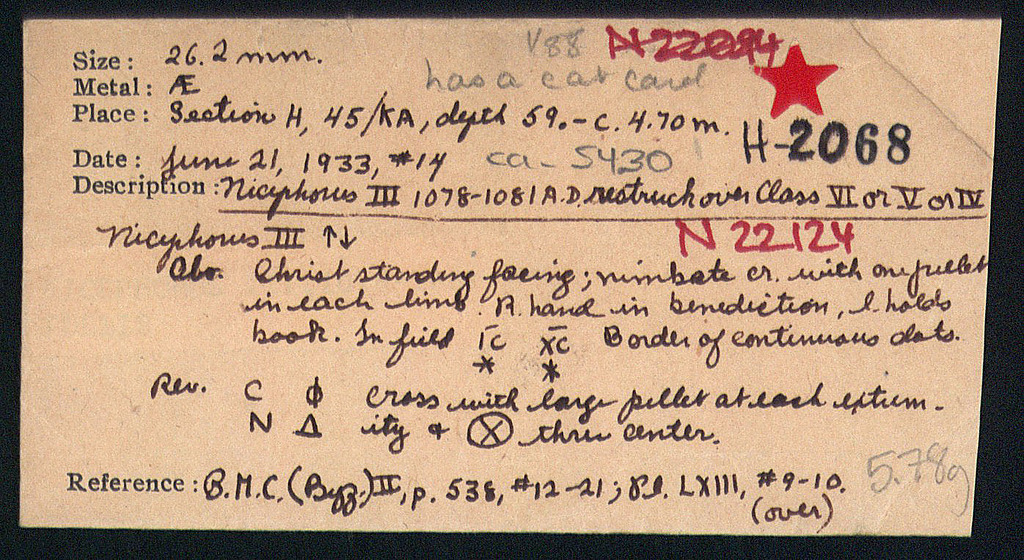 V88 N 22094
Size : 26.2 mm.
has a cat card
Metal : Æ
Place : Section H, 45/KA, depth 59.-c. 4.70 m.
H-2068
Date : June 21, 1933, #14 ca- 5430
Description : Nicephorus III 1078-1081 A.D. restruck over Class VI or V or IV
Nicephorus III ↑↓ N 22124
Obv. Christ standing facing; nimbate cr. with one pellet
in each limb. R. hand in benediction, l. holds
book. In field I̅C̅ X̅C̅ Border of continuous dots.
* *
Rev. C Φ Cross with large pellet at each extrem-
N Δ ity & Ⓧ thru center.
5.78g
Reference : B.M.C. (Byz.) II, p. 538, #12-21; Pl. LXIII, #9-10.
(over)